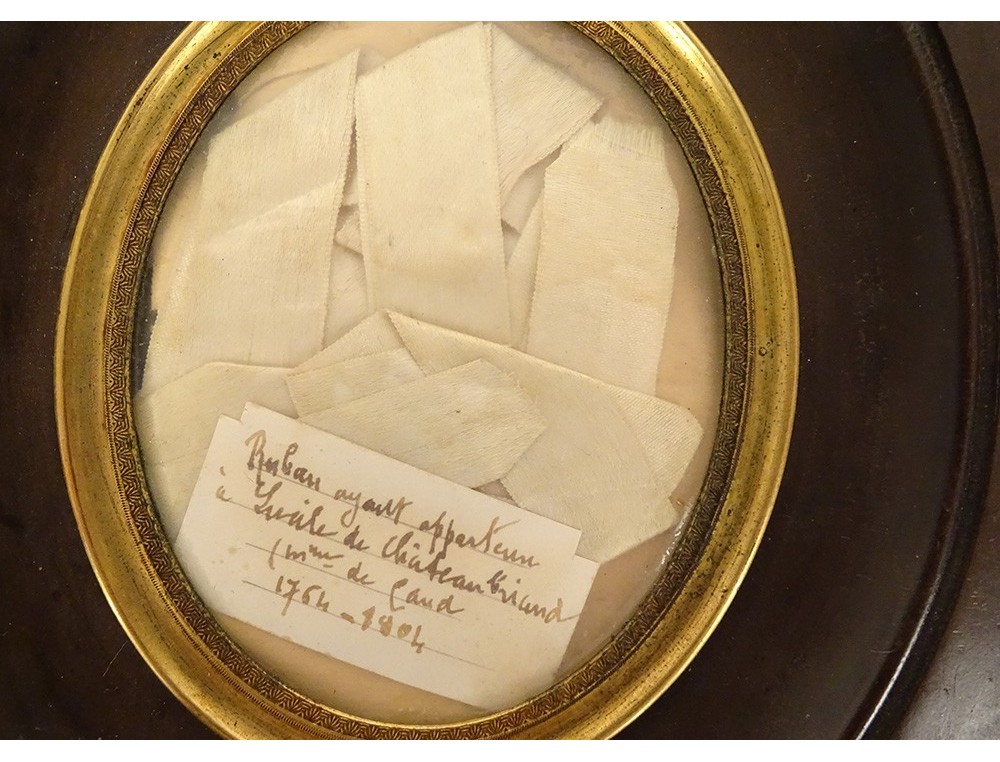 Ruban ayant appartenu
à Lucile de Châteaubriand
(Mme de Caud
1764-1804